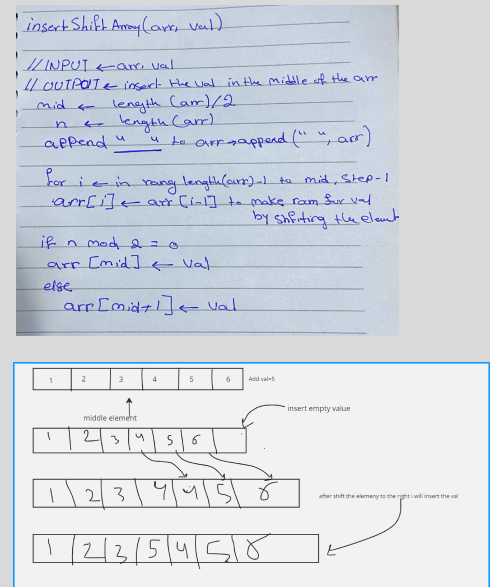 insertShiftArray(arr, val)
// INPUT ← arr, val
// OUTPUT ← insert the val in the middle of the arr
mid ← length (arr)/2
n ← length (arr)
append " " to arr → append(" ", arr)
for i ← in rang length(arr)-1 to mid, step-1
arr[i] ← arr[i-1] to make ram for val
by shfiting the elemt
if n mod 2 = 0
arr [mid] ← val
else
arr [mid+1] ← val
1 2 3 4 5 6 Add val=5
middle element
insert empty value
1 2 3 4 5 6
1 2 3 4 4 5 6
after shift the elemeny to the right i will insert the val
1 2 3 5 4 5 6